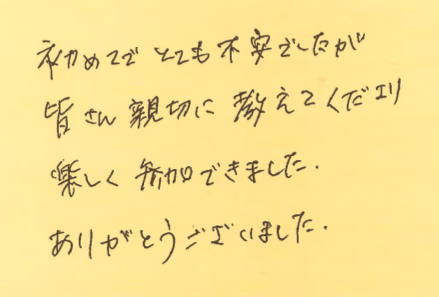 初めてで とても不安でしたが
皆さん 親切に 教えてくださり
楽しく 参加できました.
ありがとうございました.